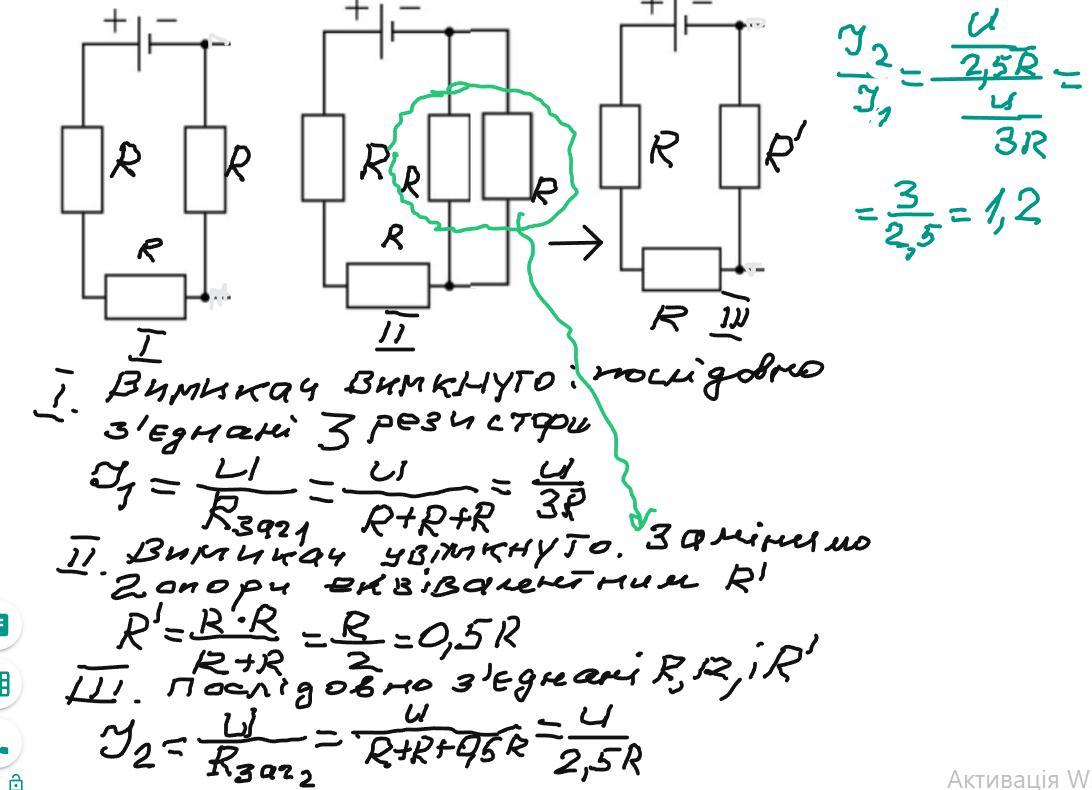 + − + − + −
R R R R R R R'
R R R
I II III
I2/I1 = (U/2,5R)/(U/3R) =
= 3/2,5 = 1,2
I. Вимикач вимкнуто: послідовно
з'єднані 3 резистори
I1 = U/Rзаг1 = U/R+R+R = U/3R
II. Вимикач увімкнуто. Замінимо
2 опори еквівалентним R'
R' = R·R/R+R = R/2 = 0,5R
III. Послідовно з'єднані R, R, і R'
I2 = U/Rзаг2 = U/R+R+0,5R = U/2,5R
Активація W